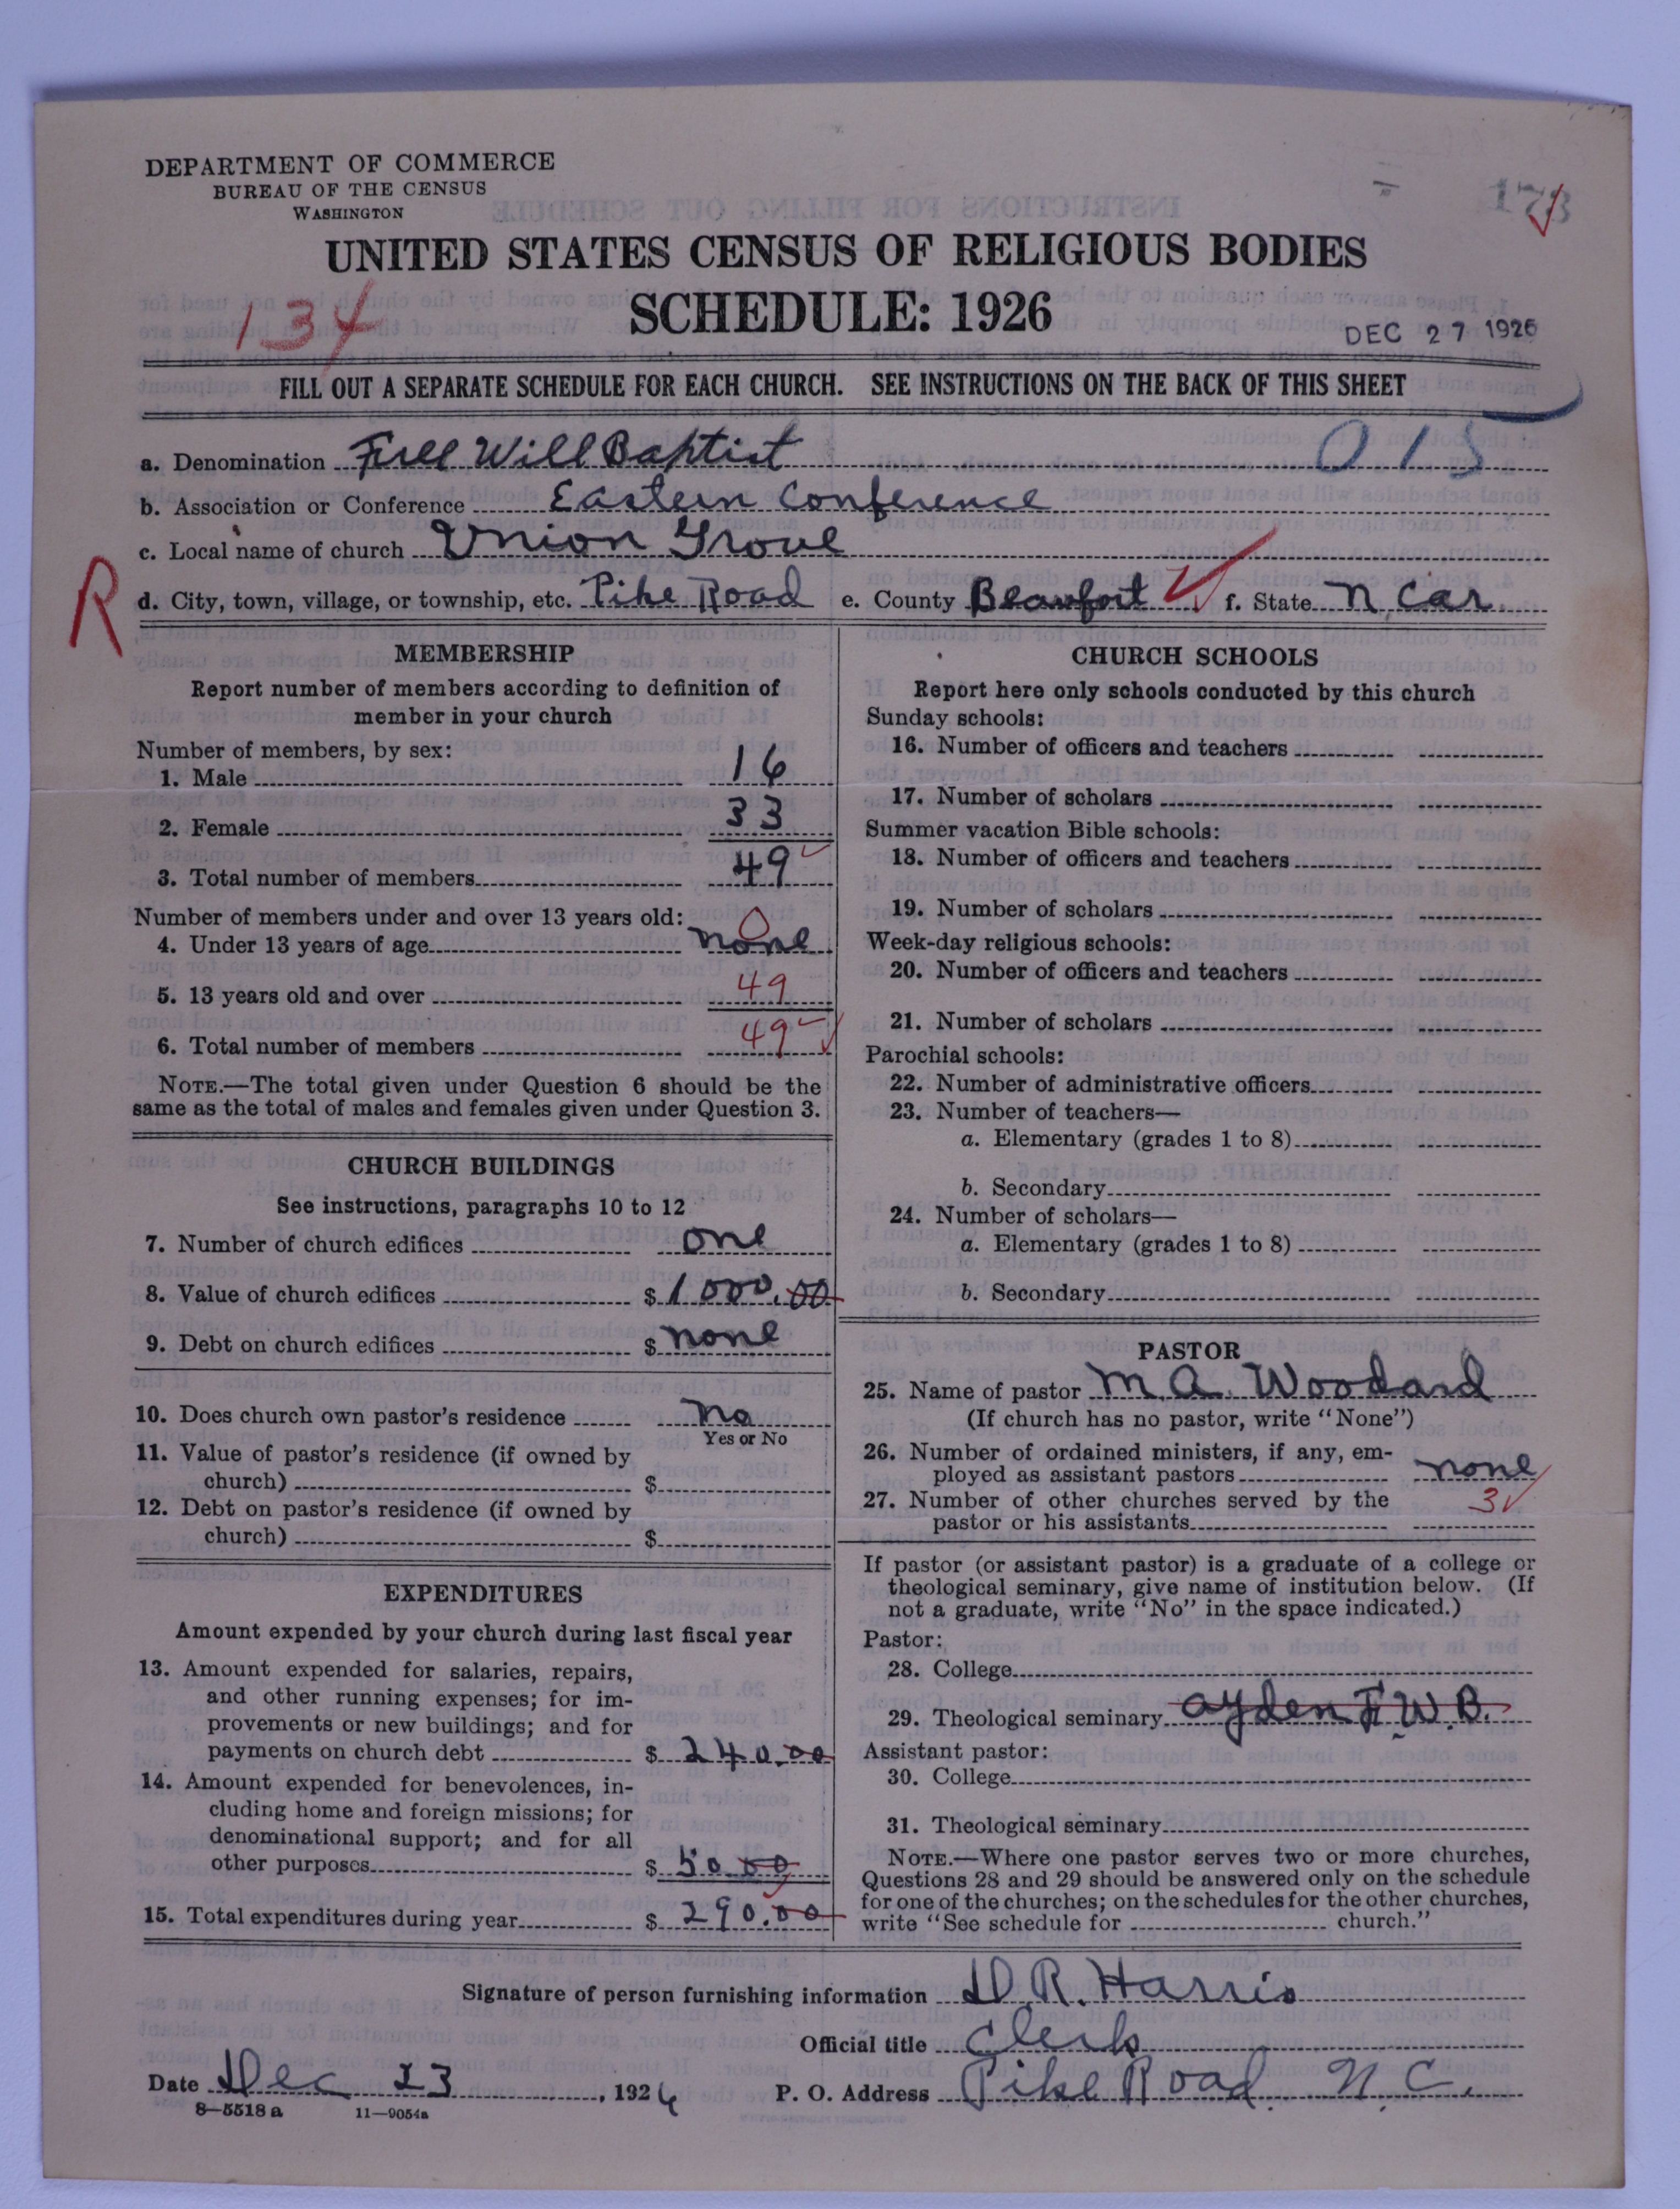 DEPARTMENT OF COMMERCE
BUREAU OF THE CENSUS
WASHINGTON
173
UNITED STATES CENSUS OF RELIGIOUS BODIES
SCHEDULE: 1926
134
DEC 27 1926
FILL OUT A SEPARATE SCHEDULE FOR EACH CHURCH. SEE INSTRUCTIONS ON THE BACK OF THIS SHEET
015
a. Denomination Free Will Baptist
b. Association or Conference Eastern Conference
c. Local name of church Union Grove
R
d. City, town, village, or township, etc. Pike Road e. County Beaufort f. State N. Car.
MEMBERSHIP
Report number of members according to definition of
member in your church
Number of members, by sex:
1. Male 16
2. Female 33
3. Total number of members 49
Number of members under and over 13 years old:
0
4. Under 13 years of age none
5. 13 years old and over 49
6. Total number of members 49
NOTE.—The total given under Question 6 should be the
same as the total of males and females given under Question 3.
CHURCH BUILDINGS
See instructions, paragraphs 10 to 12
7. Number of church edifices one
8. Value of church edifices $ 1000.00
9. Debt on church edifices $ none
10. Does church own pastor's residence no
Yes or No
11. Value of pastor's residence (if owned by
church) $
12. Debt on pastor's residence (if owned by
church) $
EXPENDITURES
Amount expended by your church during last fiscal year
13. Amount expended for salaries, repairs,
and other running expenses; for im-
provements or new buildings; and for
payments on church debt $ 240.00
14. Amount expended for benevolences, in-
cluding home and foreign missions; for
denominational support; and for all
other purposes $ 50 00
15. Total expenditures during year $ 290.00
CHURCH SCHOOLS
Report here only schools conducted by this church
Sunday schools:
16. Number of officers and teachers
17. Number of scholars
Summer vacation Bible schools:
18. Number of officers and teachers
19. Number of scholars
Week-day religious schools:
20. Number of officers and teachers
21. Number of scholars
Parochial schools:
22. Number of administrative officers
23. Number of teachers—
a. Elementary (grades 1 to 8)
b. Secondary
24. Number of scholars—
a. Elementary (grades 1 to 8)
b. Secondary
PASTOR
25. Name of pastor M. A. Woodard
(If church has no pastor, write "None")
26. Number of ordained ministers, if any, em-
ployed as assistant pastors none
27. Number of other churches served by the 3
pastor or his assistants
If pastor (or assistant pastor) is a graduate of a college or
theological seminary, give name of institution below. (If
not a graduate, write "No" in the space indicated.)
Pastor:
28. College
29. Theological seminary Ayden F. W. B.
Assistant pastor:
30. College
31. Theological seminary
NOTE.—Where one pastor serves two or more churches,
Questions 28 and 29 should be answered only on the schedule
for one of the churches; on the schedules for the other churches,
write "See schedule for church."
Signature of person furnishing information D. R. Harris
Official title Clerk
Date Dec 23, 1926 P. O. Address Pike Road, N. C.
8—5518 a 11—9054a